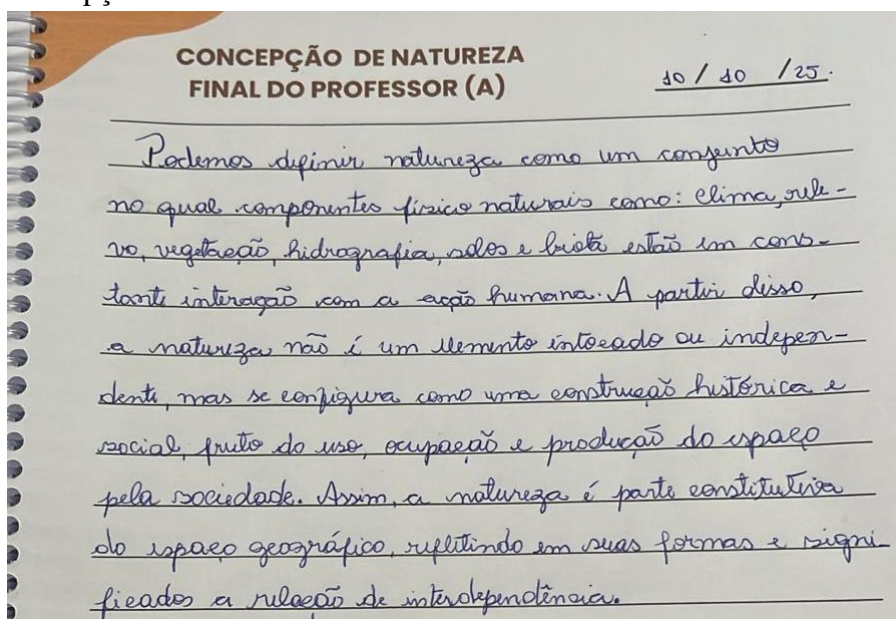 CONCEPÇÃO DE NATUREZA
FINAL DO PROFESSOR (A)
10 / 10 / 25.
Podemos definir natureza como um conjunto
no qual componentes físico naturais como: clima, rele-
vo, vegetação, hidrografia, solos e biota estão em cons-
tante interação com a ação humana. A partir disso,
a natureza não é um elemento intocado ou indepen-
dente, mas se configura como uma construção histórica e
social, fruto do uso, ocupação e produção do espaço
pela sociedade. Assim, a natureza é parte constitutiva
do espaço geográfico, refletindo em suas formas e signi-
ficados a relação de interdependência.